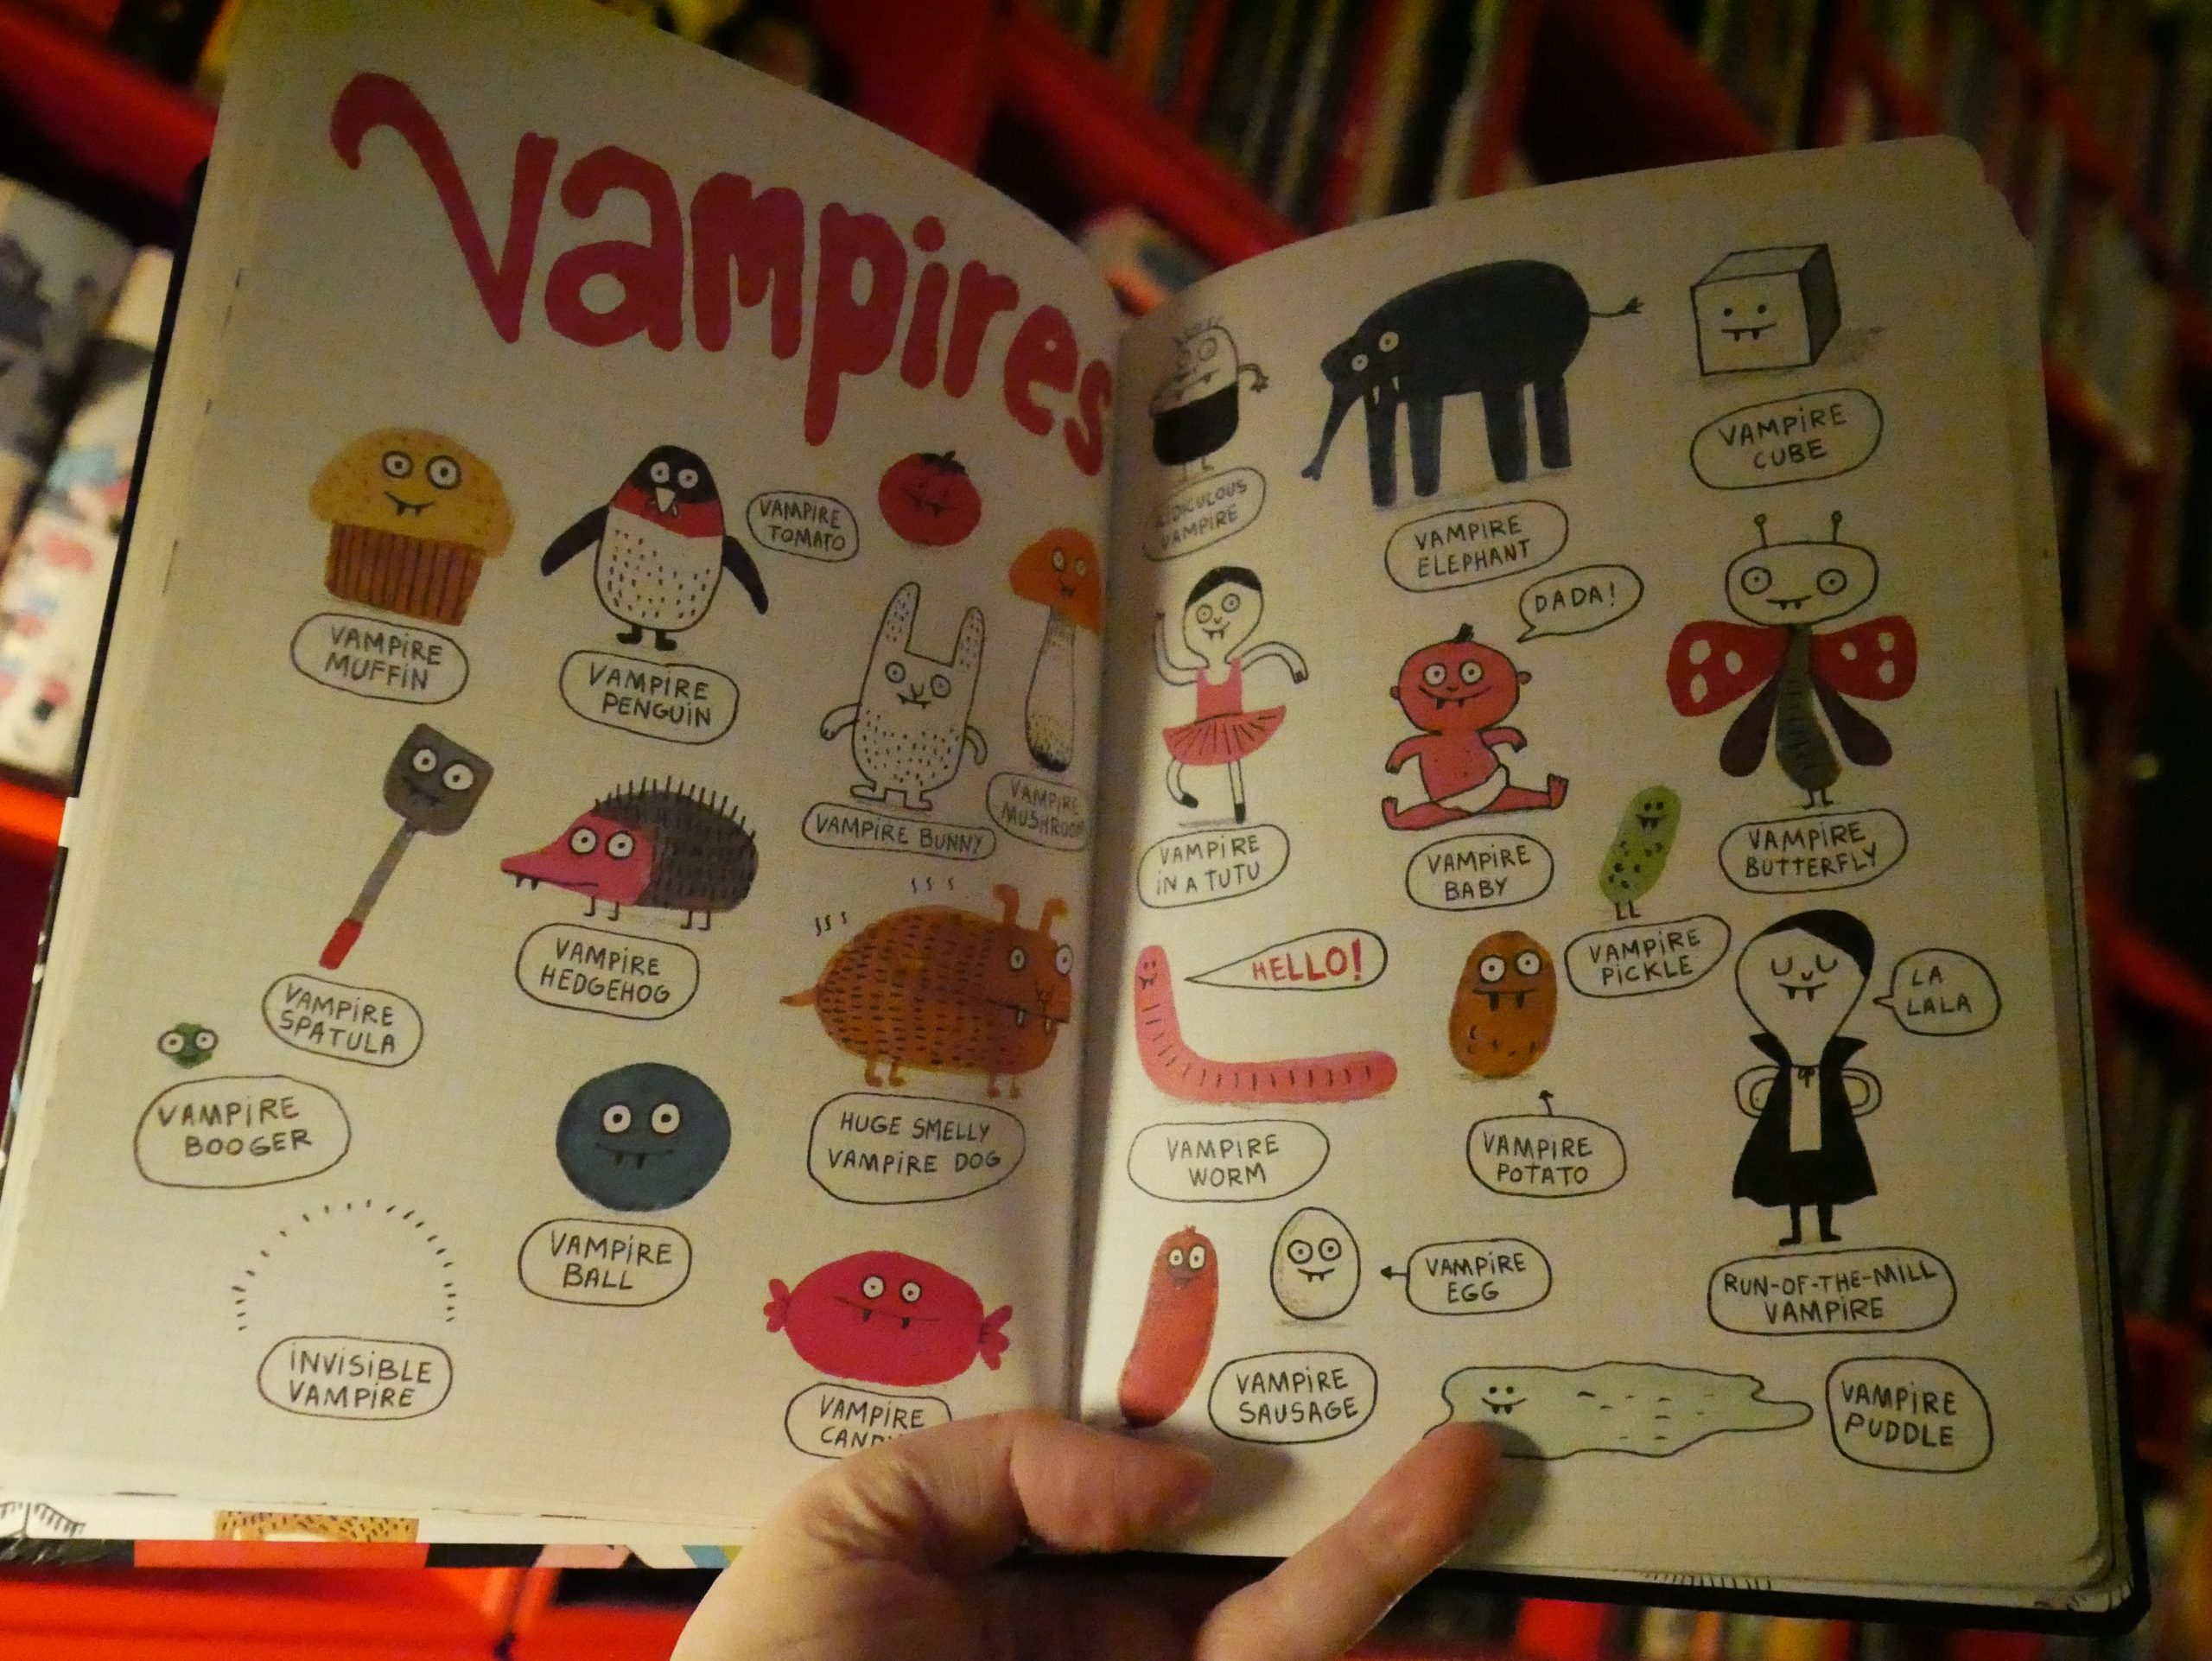 Vampires
VAMPIRE
MUFFIN
VAMPIRE
PENGUIN
VAMPIRE
TOMATO
VAMPIRE BUNNY
VAMPIRE
MUSHROOM
VAMPIRE
SPATULA
VAMPIRE
HEDGEHOG
VAMPIRE
BOOGER
VAMPIRE
BALL
HUGE SMELLY
VAMPIRE DOG
INVISIBLE
VAMPIRE
VAMPIRE
CANDY
RIDICULOUS
VAMPIRE
VAMPIRE
ELEPHANT
VAMPIRE
CUBE
VAMPIRE
IN A TUTU
DADA!
VAMPIRE
BABY
VAMPIRE
BUTTERFLY
HELLO!
VAMPIRE
WORM
VAMPIRE
PICKLE
VAMPIRE
POTATO
LA
LALA
RUN-OF-THE-MILL
VAMPIRE
VAMPIRE
SAUSAGE
VAMPIRE
EGG
VAMPIRE
PUDDLE